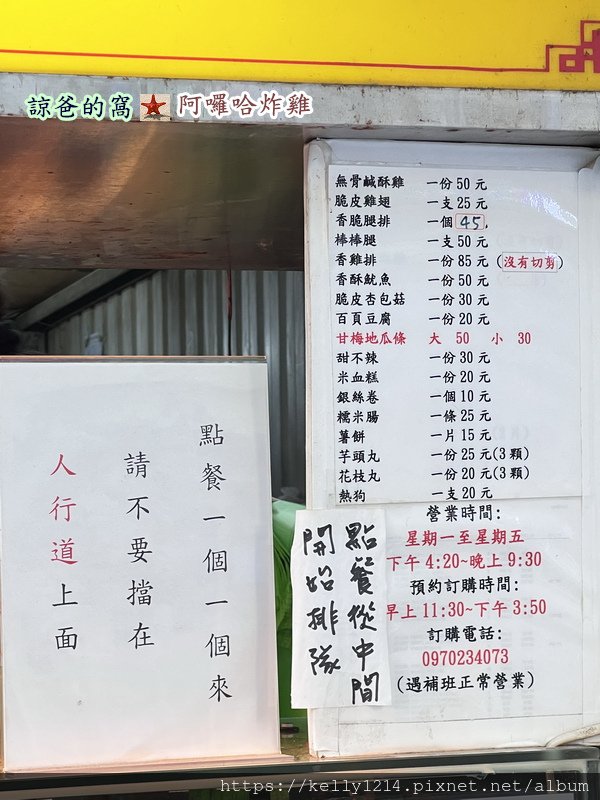 諒爸的窩 阿囉哈炸雞
無骨鹹酥雞 一份50元
脆皮雞翅 一支25元
香脆腿排 一個 45.
棒棒腿 一支50元
香雞排 一份85元(沒有切剪)
香酥魷魚 一份50元
脆皮杏包菇 一份30元
百頁豆腐 一份20元
甘梅地瓜條 大 50 小 30
甜不辣 一份30元
米血糕 一份20元
銀絲卷 一個10元
糯米腸 一條25元
薯餅 一片15元
芋頭丸 一份25元(3顆)
花枝丸 一份20元(3顆)
熱狗 一支20元
營業時間:
星期一至星期五
下午4:20~晚上9:30
預約訂購時間:
早上11:30~下午3:50
訂購電話:
0970234073
(遇補班正常營業)
點餐從中間
開始排隊
點餐一個一個來
請不要擋在
人行道上面
https://kelly1214.pixnet.net/album